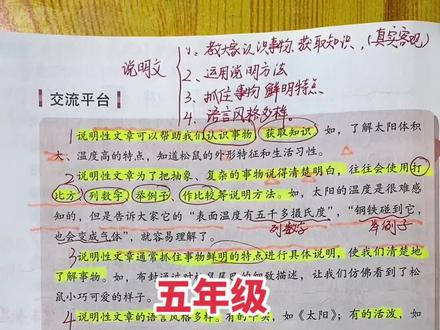 说明文
1、教大家认识事物、获取知识、(真实客观)
2、运用说明方法
3、抓住事物鲜明特点
4、语言风格多样。
交流平台
1 说明性文章可以帮助我们认识事物、获取知识。如，了解太阳体积
大、温度高的特点，知道松鼠的外形特征和生活习性。
2 说明性文章为了把抽象、复杂的事物说得清楚明白，往往会使用打
比方、列数字、举例子、作比较等说明方法。如，太阳的温度是很难感
知的，但是告诉大家它的“表面温度有五千多摄氏度”，“钢铁碰到它，
也会变成气体”，就容易理解了。
列数字
举例子
3 说明性文章通常抓住事物鲜明的特点进行具体说明，使我们清楚地
了解事物。如，
的细致描述，让我们仿佛看到了松
鼠小巧可爱的样子。
五年级
4 说明性文章的语言风格多样。有的平实，如《太阳》；有的活泼，如